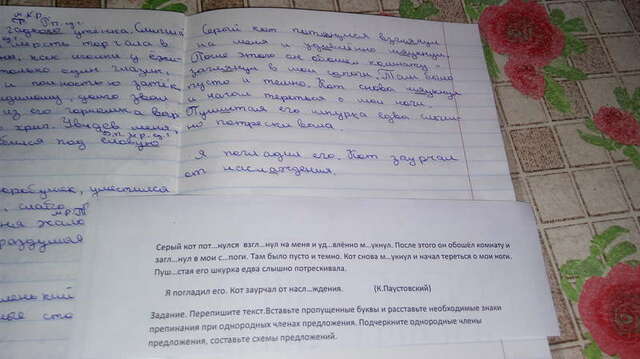 м.р. П.п. ед.ч.
гадкого утёнка. Слипший
шерсть торчала в
только один глазик,
и полностью затёк
из его горлышка вар
хрип. Увидев меня,
П.п. м.р. ед.ч.
под еловую
уместился
м.р. П
Серый кот потянулся взглянул
на меня и удивлённо мяукнул.
После этого он обошел комнату и
заглянул в мои сапоги. Там было
пусто и темно. Кот снова мяукнул
и начал тереться о мои ноги.
Пушистая его шкурка едва слыш
но потрескивала.
Я погладил его. Кот заурчал
от наслаждения.
Серый кот пот...нулся взгл...нул на меня и уд...влённо м...укнул. После этого он обошёл комнату и
загл...нул в мои с...поги. Там было пусто и темно. Кот снова м...укнул и начал тереться о мои ноги.
Пуш...стая его шкурка едва слышно потрескивала.
Я погладил его. Кот заурчал от насл...ждения. (К.Паустовский)
Задание. Перепишите текст.Вставьте пропущенные буквы и расставьте необходимые знаки
препинания при однородных членах предложения. Подчеркните однородные члены
предложения, составьте схемы предложений.